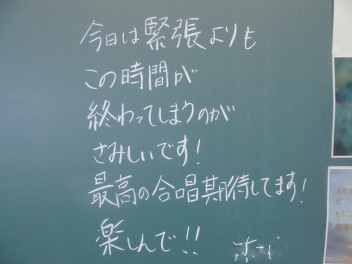 今日は緊張よりも
この時間が
終わってしまうのが
さみしいです!
最高の合唱期待してます!
楽しんで!!